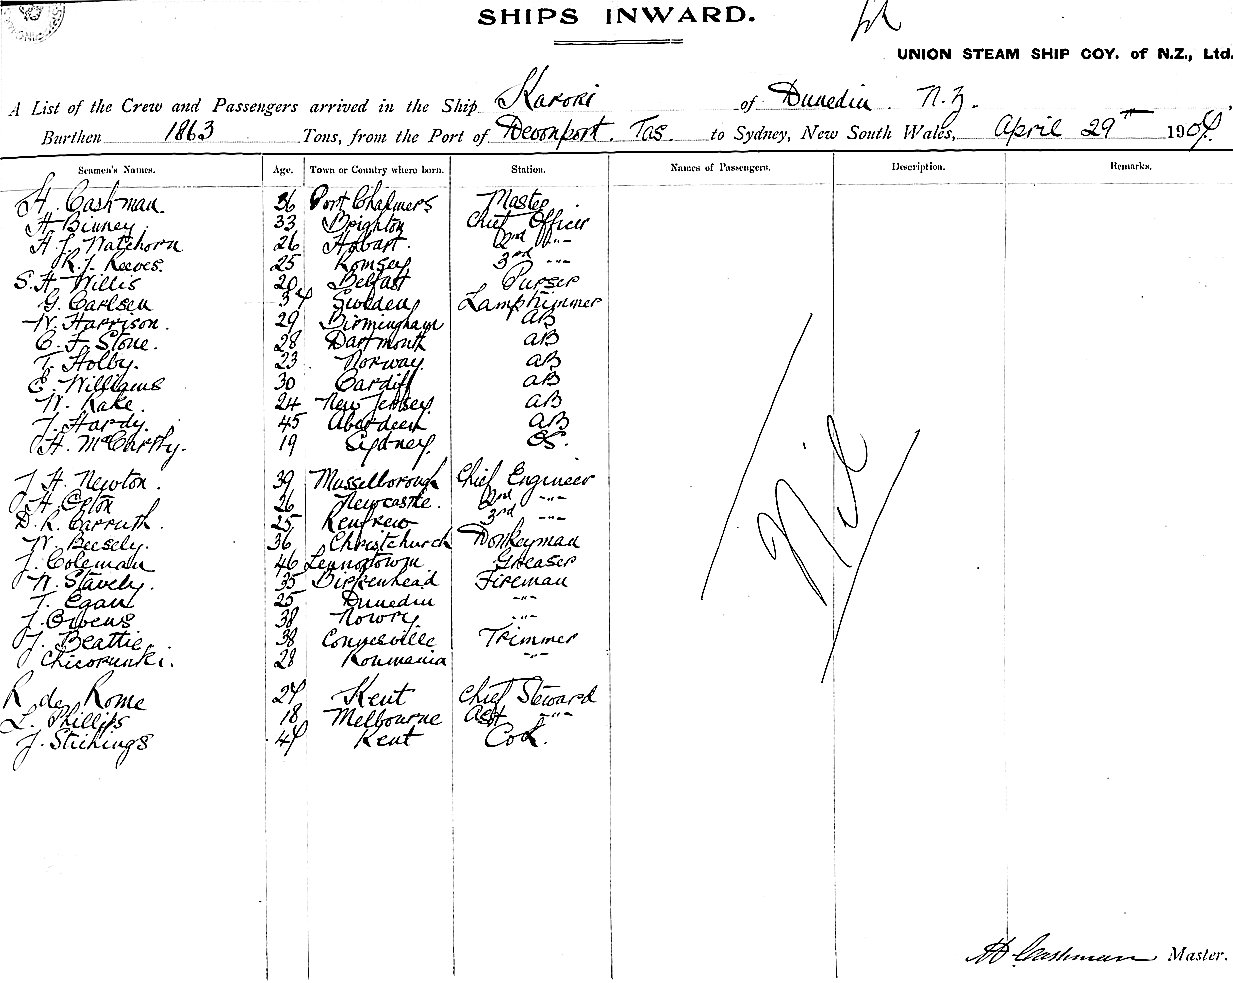 SHIPS INWARD.
UNION STEAM SHIP COY. of N.Z., Ltd.
A List of the Crew and Passengers arrived in the Ship Karori of Dunedin N.Z.
Burthen 1863 Tons, from the Port of Devonport. Tas. to Sydney, New South Wales, April 29th 1904.
Seamen's Names. Age. Town or Country where born. Station. Names of Passengers. Description. Remarks.
H. Cashman. 36 Port Chalmers Master
A. Binney. 33 Brighton Chief Officer
26 Hobart. 2nd "
R. J. Reeves. 25 Romsey 3rd "
S. H. Willis 20 Belfast Purser
G. Carlsen 34 Sweden Lamptrimmer
W. Harrison. 29 Birmingham AB
C. F. Stone. 28 Dartmouth AB
T. Holby. 23 Norway. AB
E. Williams 30 Cardiff AB
W. Rake. 24 New Jersey. AB
J. Hardy. 45 Aberdeen AB
H. McCarthy. 19 Sydney. OS.
J. H. Newton. 39 Musselborough Chief Engineer
26 Newcastle. 2nd "
D. R. Carruth. 25 Renfrew 3rd "
W. Beesely. 36 Christchurch Donkeyman
J. Coleman 46 Greaser
W. Stavely. 35 Birkenhead Fireman
T. Egan 25 Dunedin "
J. Owens 38 Nowry. "
J. Beattie. 38 Trimmer
28 Roumania "
R de Rome 24 Kent Chief Steward
L. Phillips 18 Melbourne Asst "
J. Stichings 44 Kent Cook.
Nil
H Cashman Master.